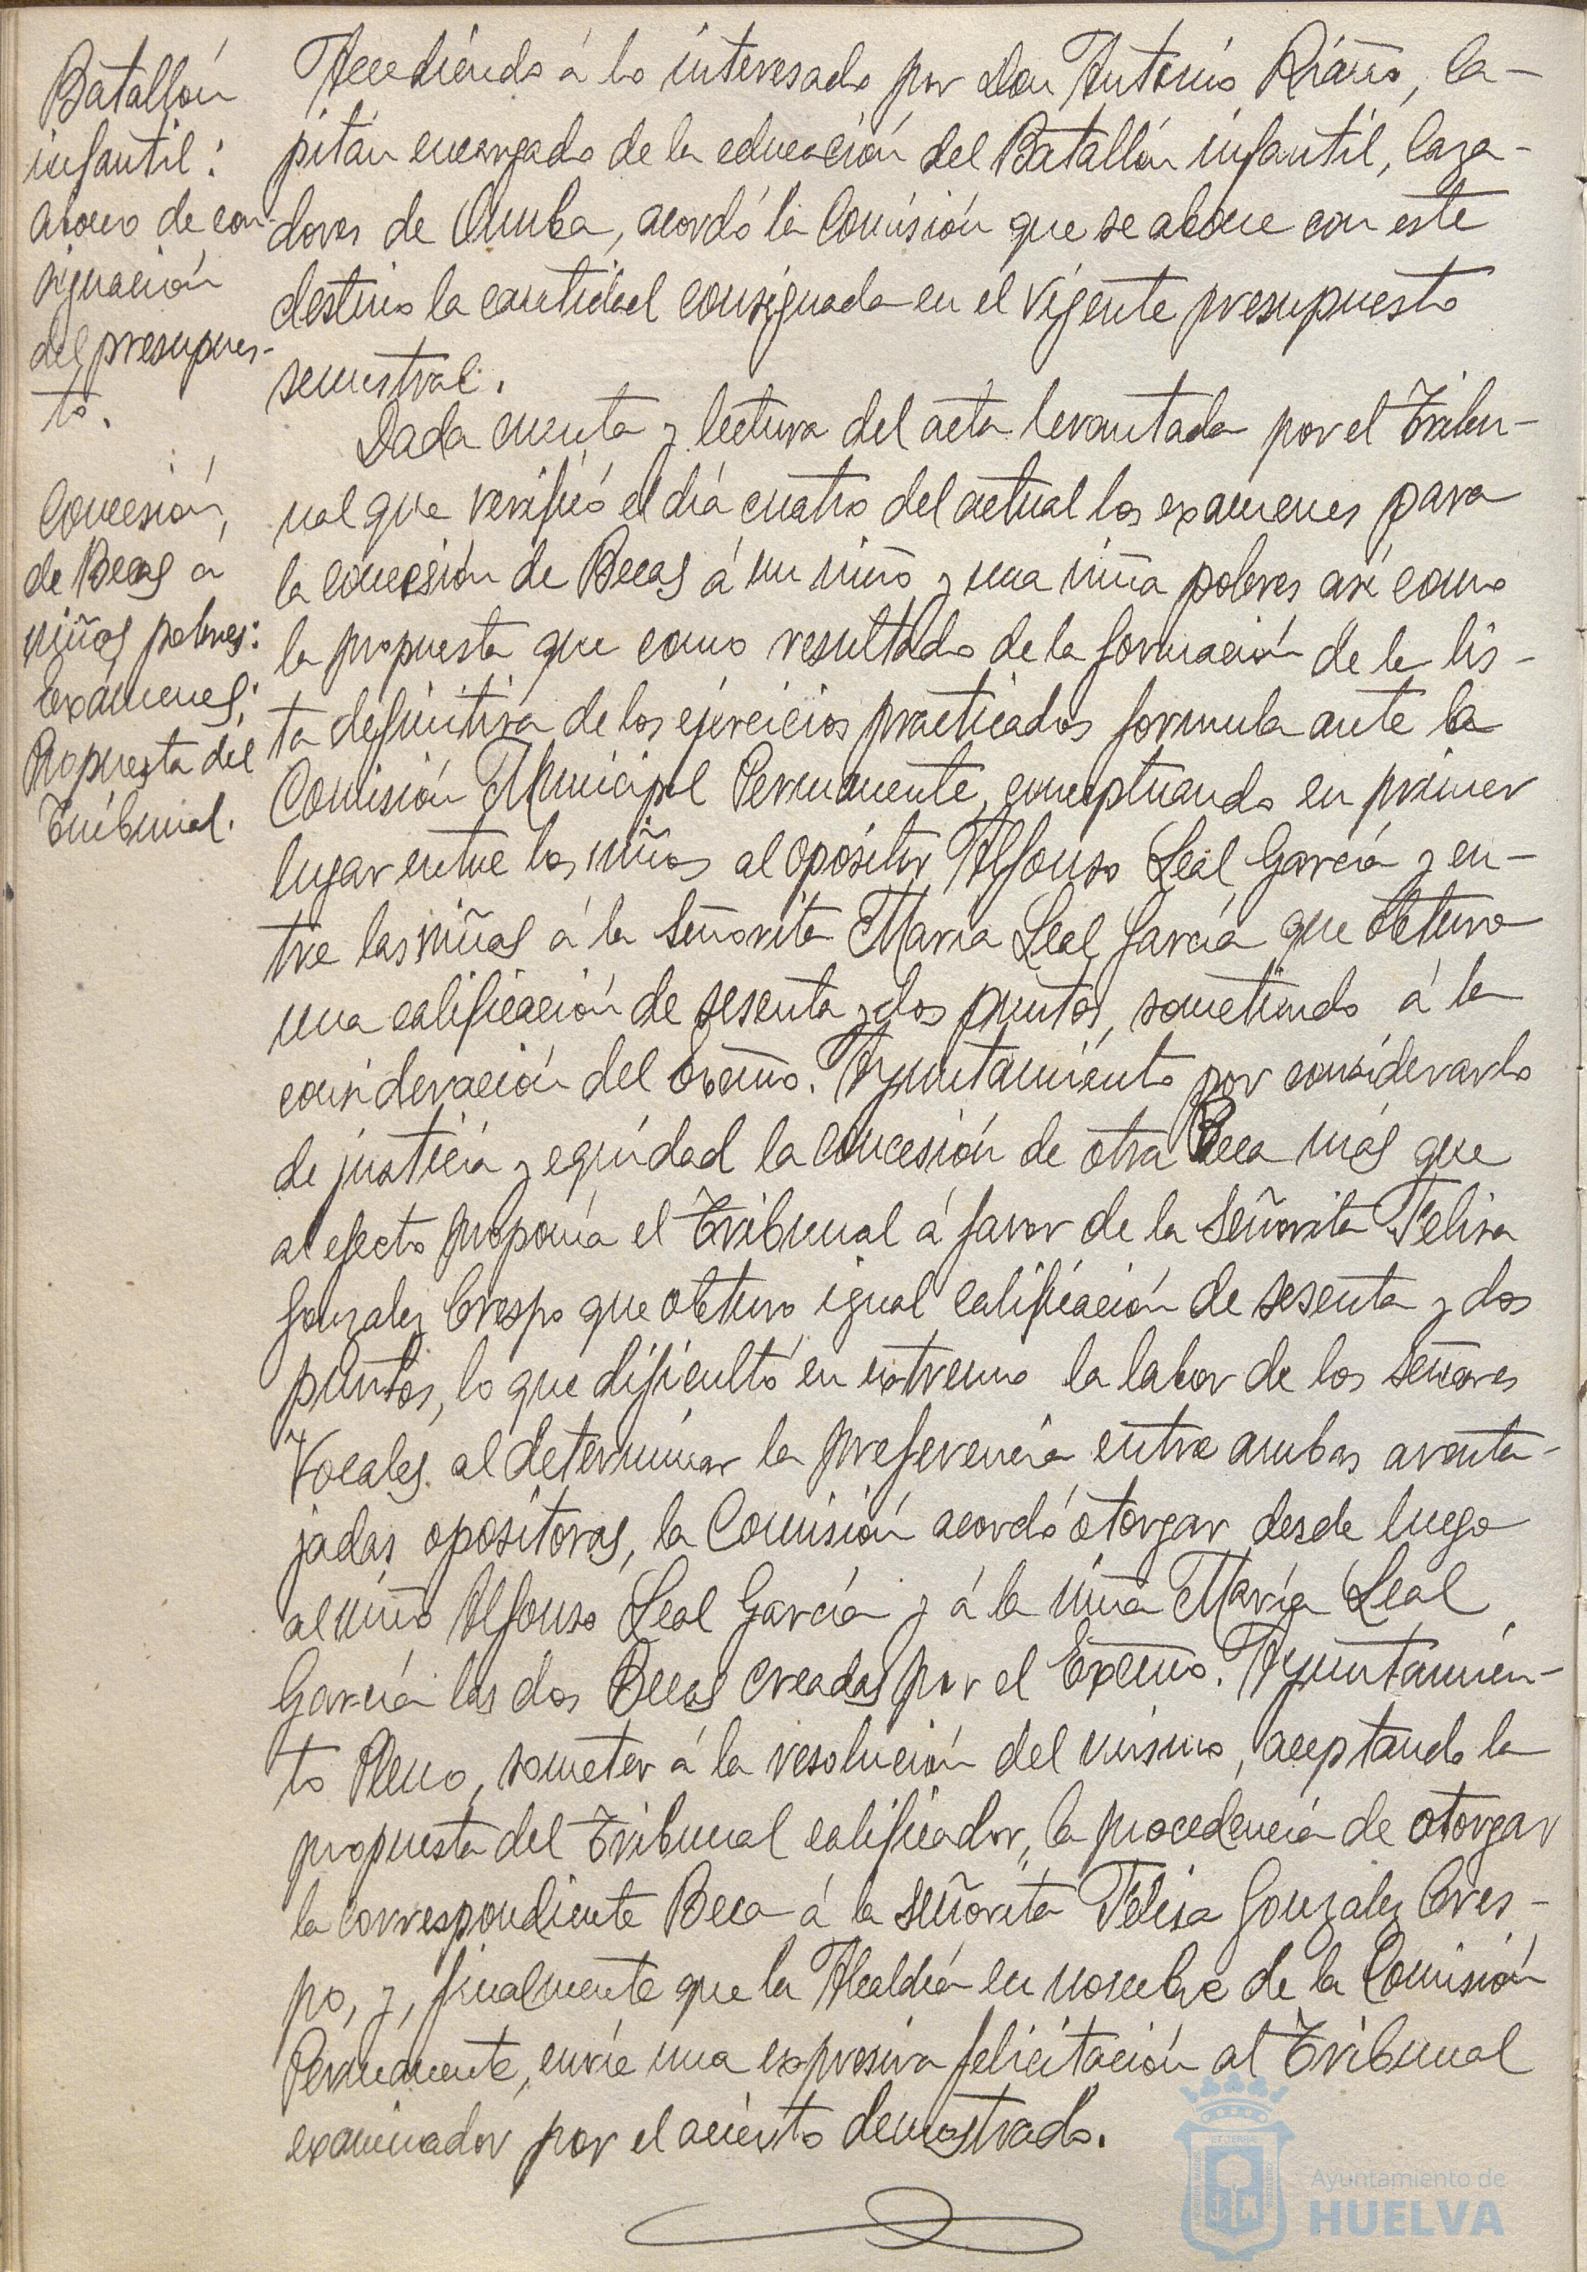 Batallón
infantil:
abono de con-
signación
del presupues-
to.
Accediendo á lo interesado por Don Antonio Riaño, Ca-
pitán encargado de la educación del Batallón infantil, Caza-
dores de Onuba, acordó la Comisión que se abone con este
destino la cantidad consignada en el vigente presupuesto
semestral.
Concesión,
de Becas á
niños pobres:
Exámenes:
Propuesta del
Tribunal.
Dada cuenta y lectura del acta levantada por el Tribu-
nal que verificó el día cuatro del actual los exámenes para
la concesión de Becas á un niño y una niña pobres así como
la propuesta que como resultado de la formación de la lis-
ta definitiva de los ejercicios practicados formula ante la
Comisión Municipal Permanente, conceptuando en primer
lugar entre los niños al opositor Alfonso Leal García y en-
tre las niñas á la Señorita María Leal García que obtuvo
una calificación de sesenta y dos puntos, sometiendo á la
consideración del Excmo. Ayuntamiento por considerarlo
de justicia y equidad la concesión de otra Beca más que
al efecto proponía el Tribunal á favor de la Señorita Felisa
Gonzalez Crespo que obtuvo igual calificación de sesenta y dos
puntos, lo que dificultó en extremo la labor de los señores
Vocales al determinar la preferencia entre ambas aventa-
jadas opositoras, la Comisión acordó otorgar desde luego
al niño Alfonso Leal García y á la niña María Leal
García las dos Becas creadas por el Excmo. Ayuntamien-
to Pleno, someter á la resolución del mismo, aceptando la
propuesta del Tribunal calificador, la procedencia de otorgar
la correspondiente Beca á la señorita Felisa Gonzalez Cres-
po, y, finalmente que la Alcaldía en nombre de la Comisión
Permanente, envíe una expresiva felicitación al Tribunal
examinador por el acierto demostrado.
Ayuntamiento de
HUELVA